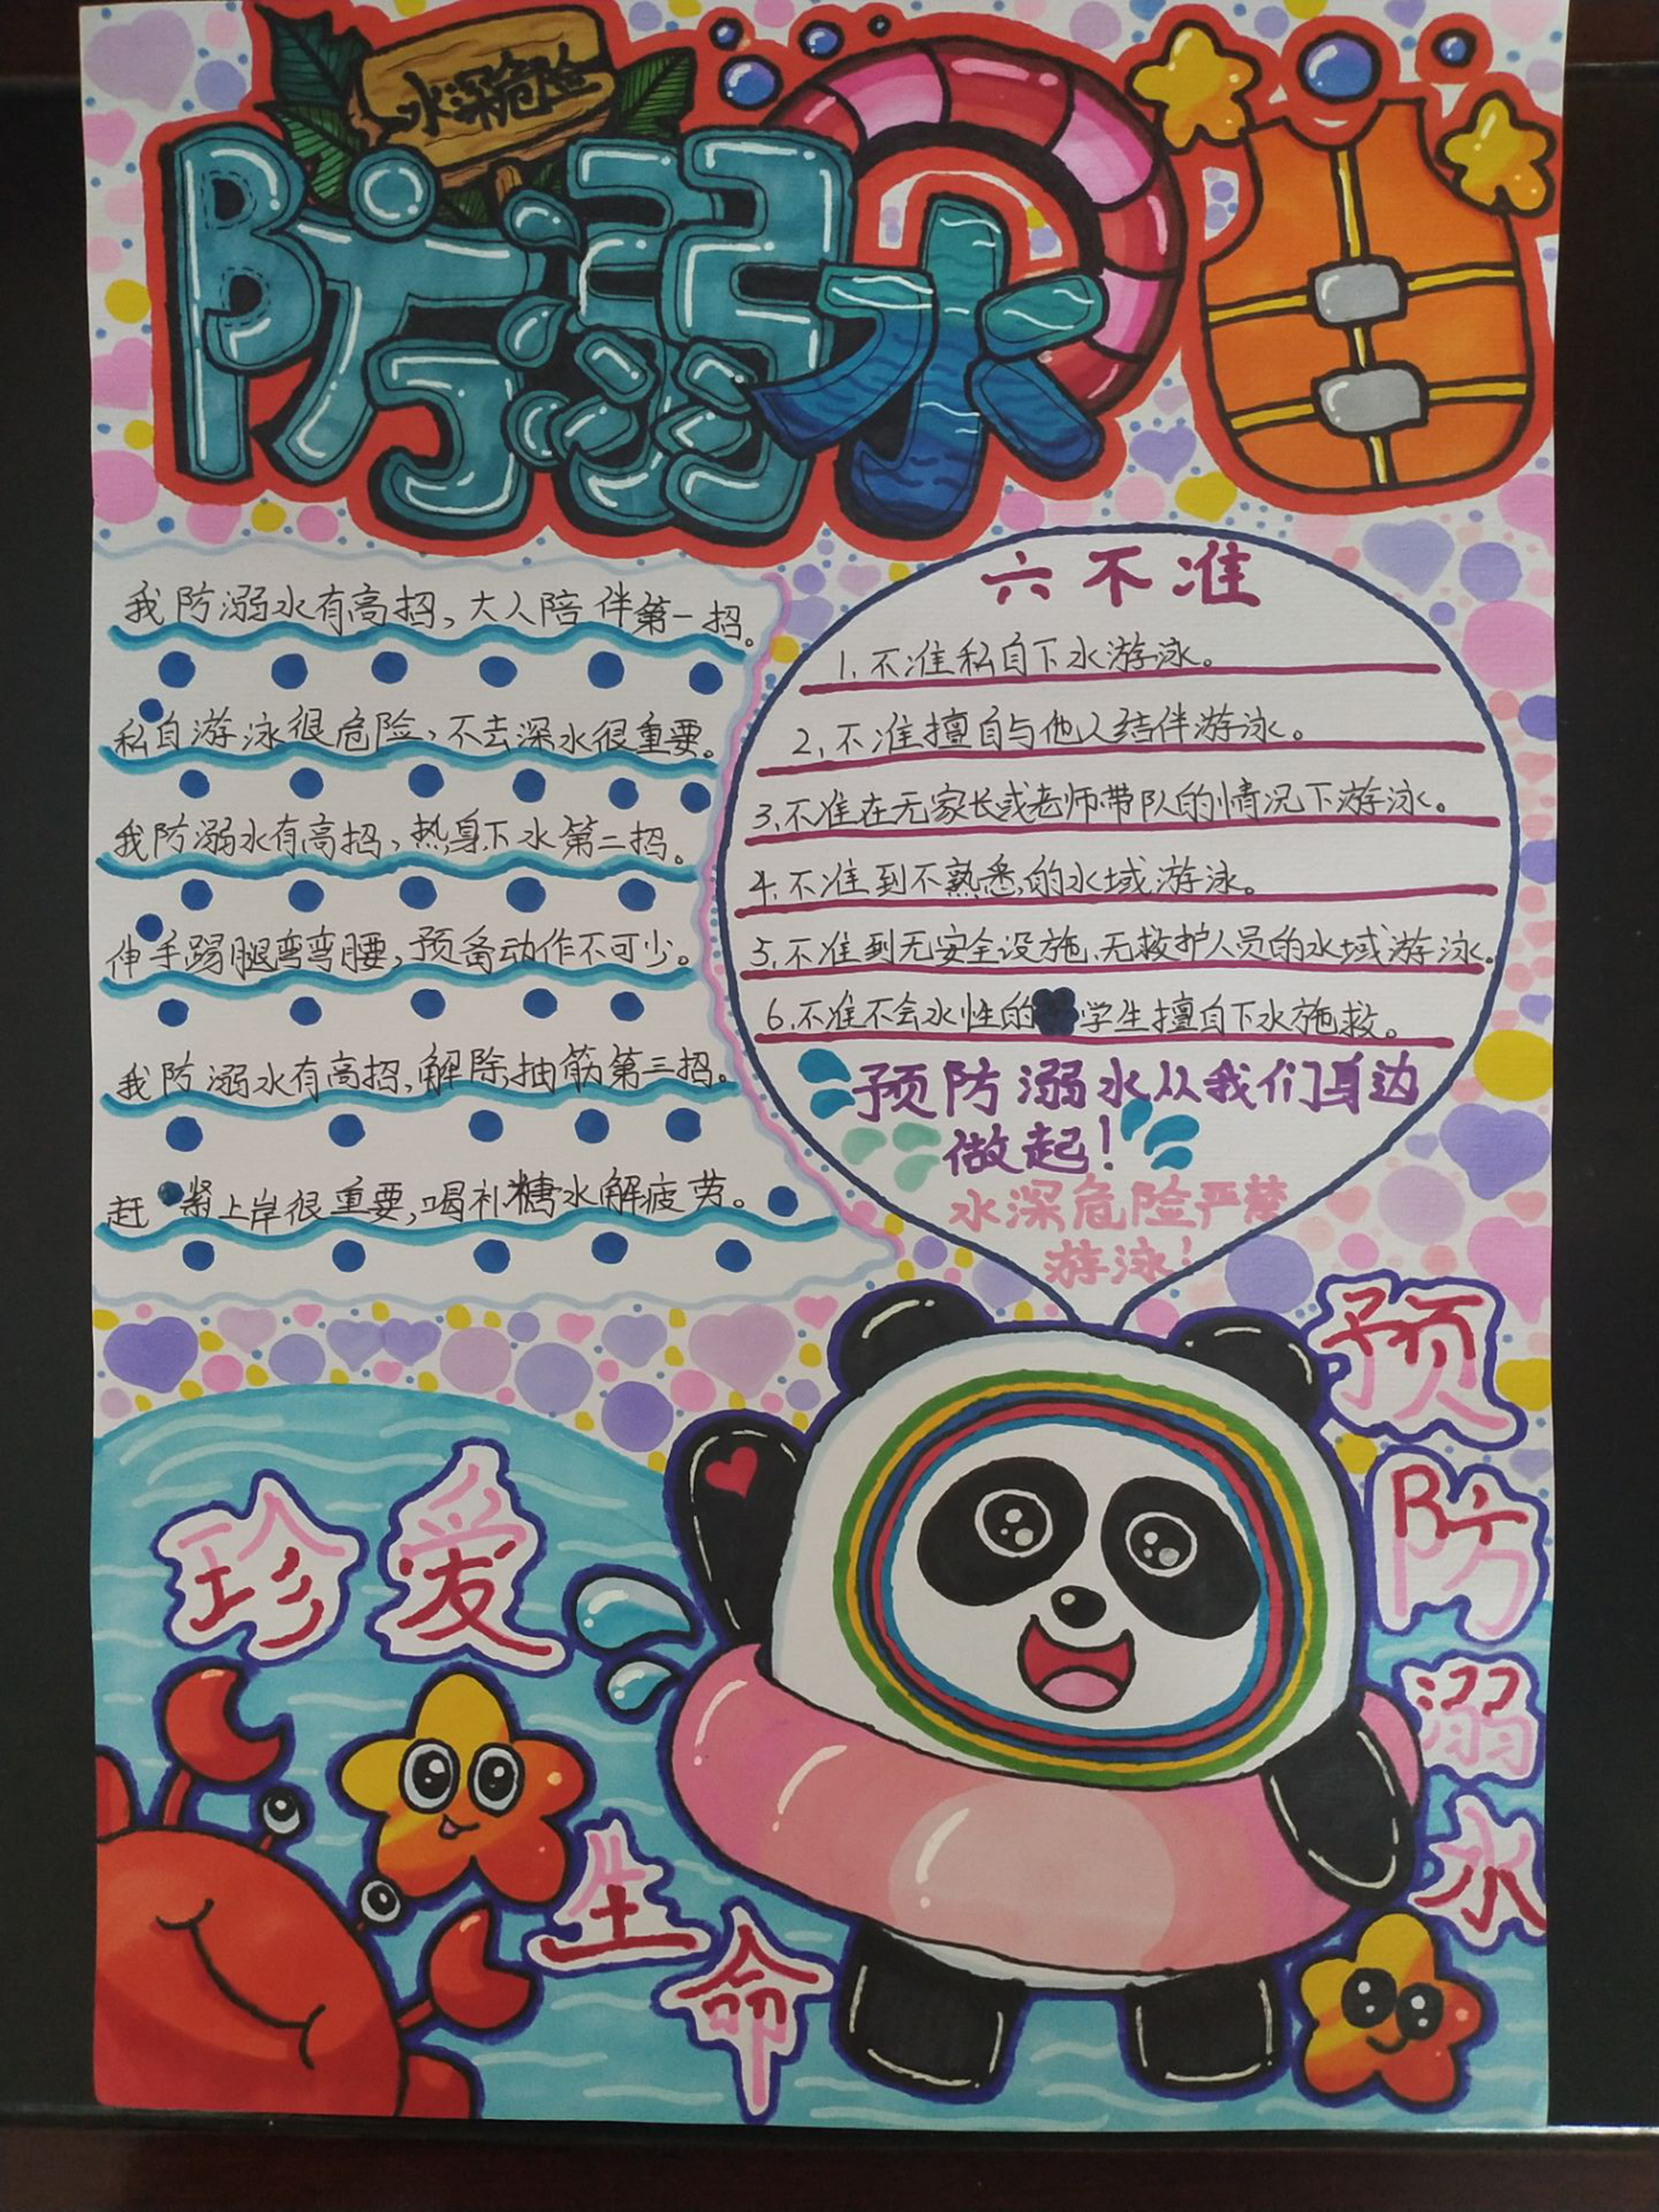 水深危险
防溺水
我防溺水有高招，大人陪伴第一招。
私自游泳很危险，不去深水很重要。
我防溺水有高招，热身下水第二招。
伸手踢腿弯弯腰，预备动作不可少。
我防溺水有高招，解除抽筋第三招。
赶紧上岸很重要，喝补糖水解疲劳。
六不准
1.不准私自下水游泳。
2.不准擅自与他人结伴游泳。
3.不准在无家长或老师带队的情况下游泳。
4.不准到不熟悉的水域游泳。
5.不准到无安全设施、无救护人员的水域游泳。
6.不准不会水性的学生擅自下水施救。
预防溺水从我们身边
做起！
水深危险严禁
游泳！
珍爱
生命
预防溺水